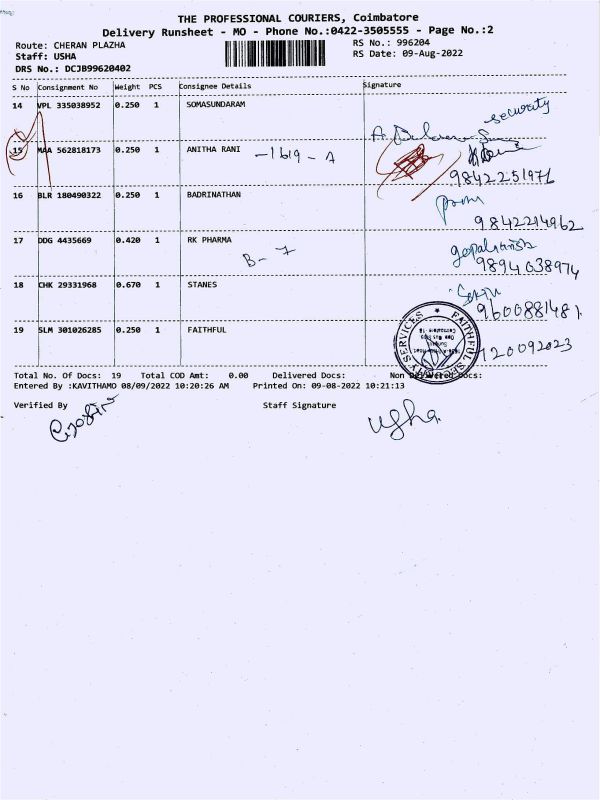 THE PROFESSIONAL COURIERS, Coimbatore
Delivery Runsheet - MO - Phone No.:0422-3505555 - Page No.:2
Route: CHERAN PLAZHA
RS No.: 996204
Staff: USHA
RS Date: 09-Aug-2022
DRS No.: DCJB99620402
S No Consignment No Weight PCS Consignee Details Signature
14 VPL 335038952 0.250 1 SOMASUNDARAM
security
15 MAA 562818173 0.250 1 ANITHA RANI -1619-A
9842251976
16 BLR 180490322 0.250 1 BADRINATHAN
9842214962
17 DDG 4435669 0.420 1 RK PHARMA
B-7
9894038974
18 CHK 29331968 0.670 1 STANES
9600881481
19 SLM 301026285 0.250 1 FAITHFUL
FAITHFUL SERVICES
7200092023
Total No. Of Docs: 19 Total COD Amt: 0.00 Delivered Docs: Non Delivered Docs:
Entered By :KAVITHAMO 08/09/2022 10:20:26 AM Printed On: 09-08-2022 10:21:13
Verified By Staff Signature
usha